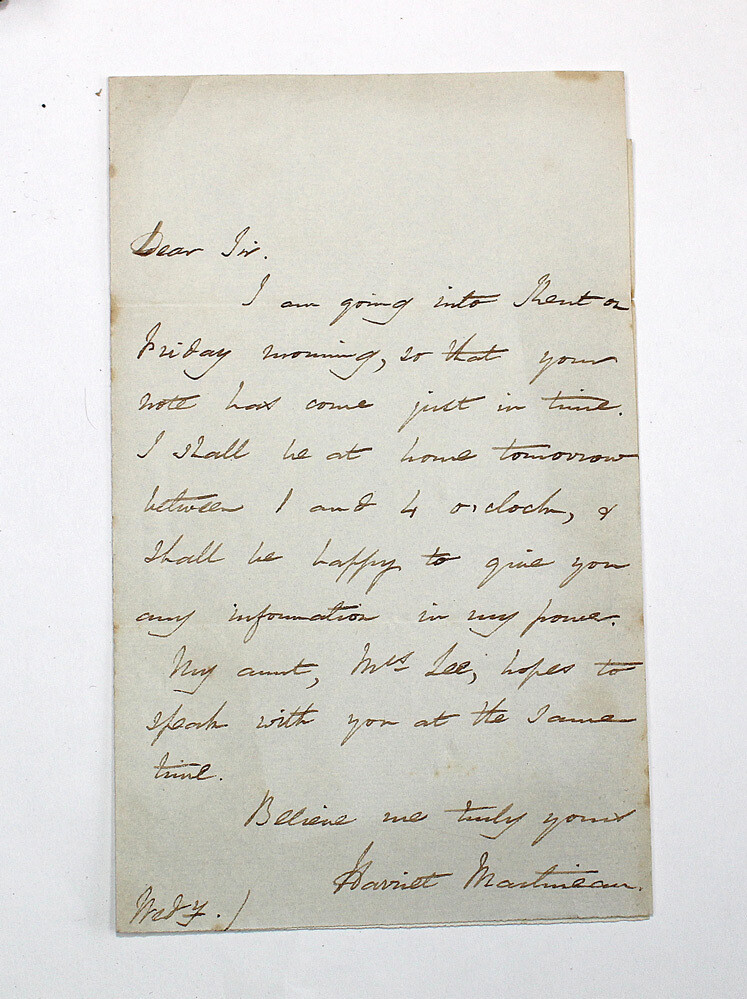 Dear Sir.
I am going into Kent on
Friday morning, so that your
note has come just in time.
I shall be at home tomorrow
between 1 and 4 o'clock, &
shall be happy to give you
any information in my power.
My aunt, Mrs. Lee, hopes to
speak with you at the same
time.
Believe me truly yours
Harriet Martineau.
Wedy.)